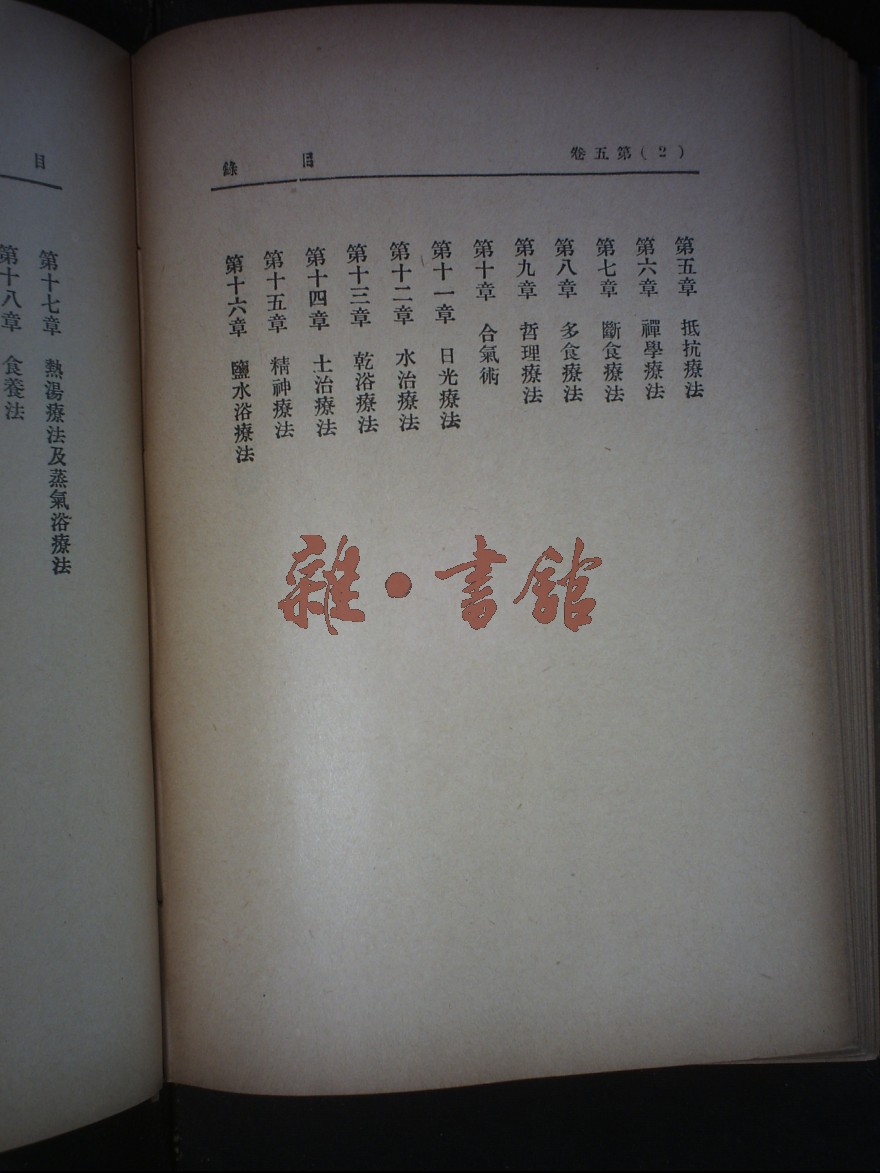 (2)第五卷
目錄
第五章 抵抗療法
第六章 禪學療法
第七章 斷食療法
第八章 多食療法
第九章 哲理療法
第十章 合氣術
第十一章 日光療法
第十二章 水治療法
第十三章 乾浴療法
第十四章 土治療法
第十五章 精神療法
第十六章 鹽水浴療法
目
第十七章 熱湯療法及蒸氣浴療法
第十八章 食養法
雜·書館